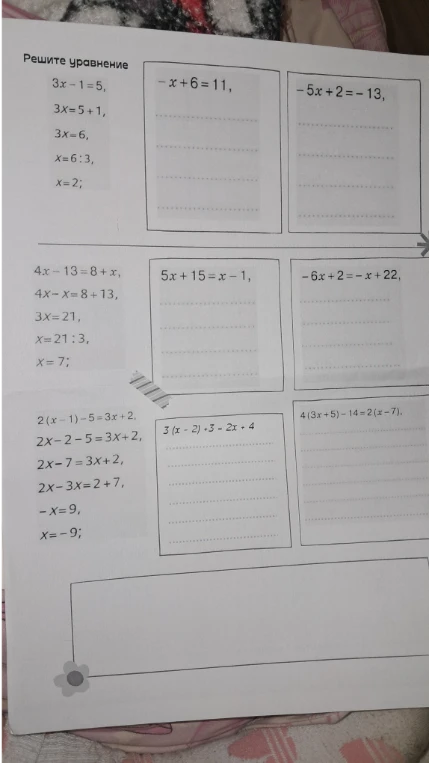 Решите уравнение
3x – 1 = 5,
3x = 5 + 1,
3x = 6,
x = 6 : 3,
x = 2;
– x + 6 = 11,
– 5x + 2 = – 13,
4x – 13 = 8 + x,
4x – x = 8 + 13,
3x = 21,
x = 21 : 3,
x = 7;
5x + 15 = x – 1,
– 6x + 2 = – x + 22,
2(x – 1) – 5 = 3x + 2,
2x – 2 – 5 = 3x + 2,
2x – 7 = 3x + 2,
2x – 3x = 2 + 7,
– x = 9,
x = – 9;
3 (x – 2) + 3 = 2x + 4
4(3x + 5) – 14 = 2(x – 7),